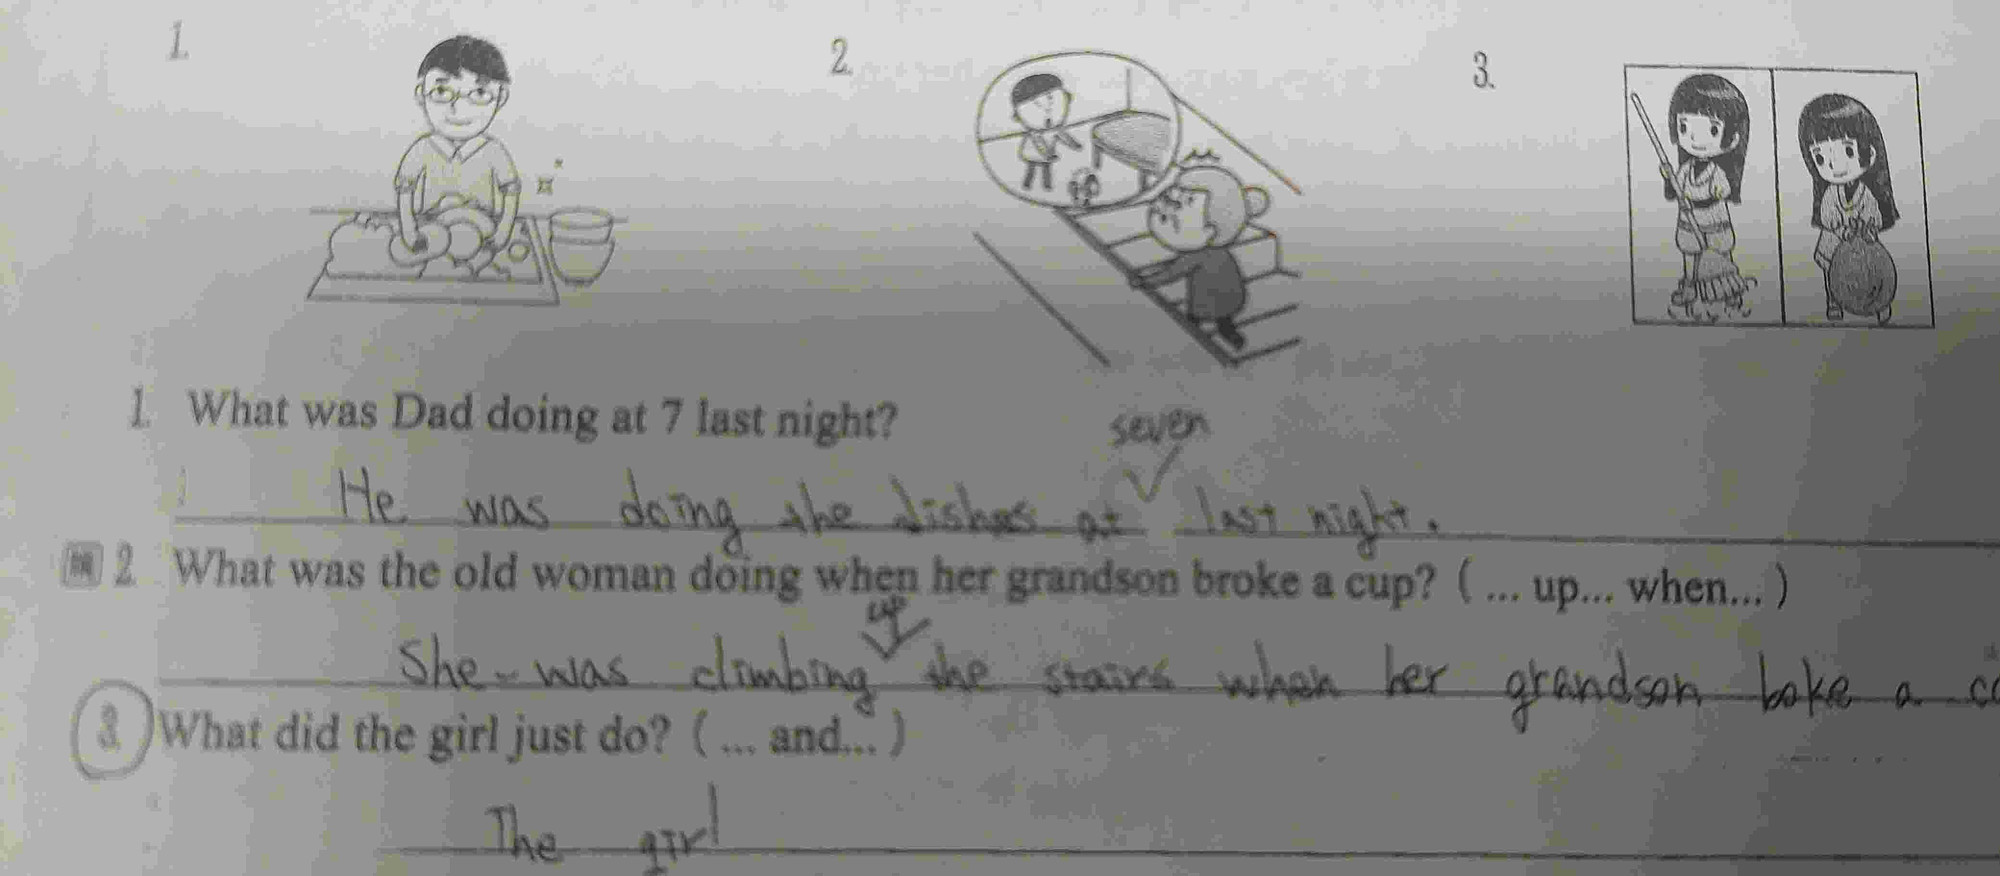 1.
2.
3.
1. What was Dad doing at 7 last night?
seven
He was doing the dishes at last night.
2. What was the old woman doing when her grandson broke a cup? ( ... up... when... )
up
She was climbing the stairs when her grandson boke a
3. What did the girl just do? ( ... and... )
The girl